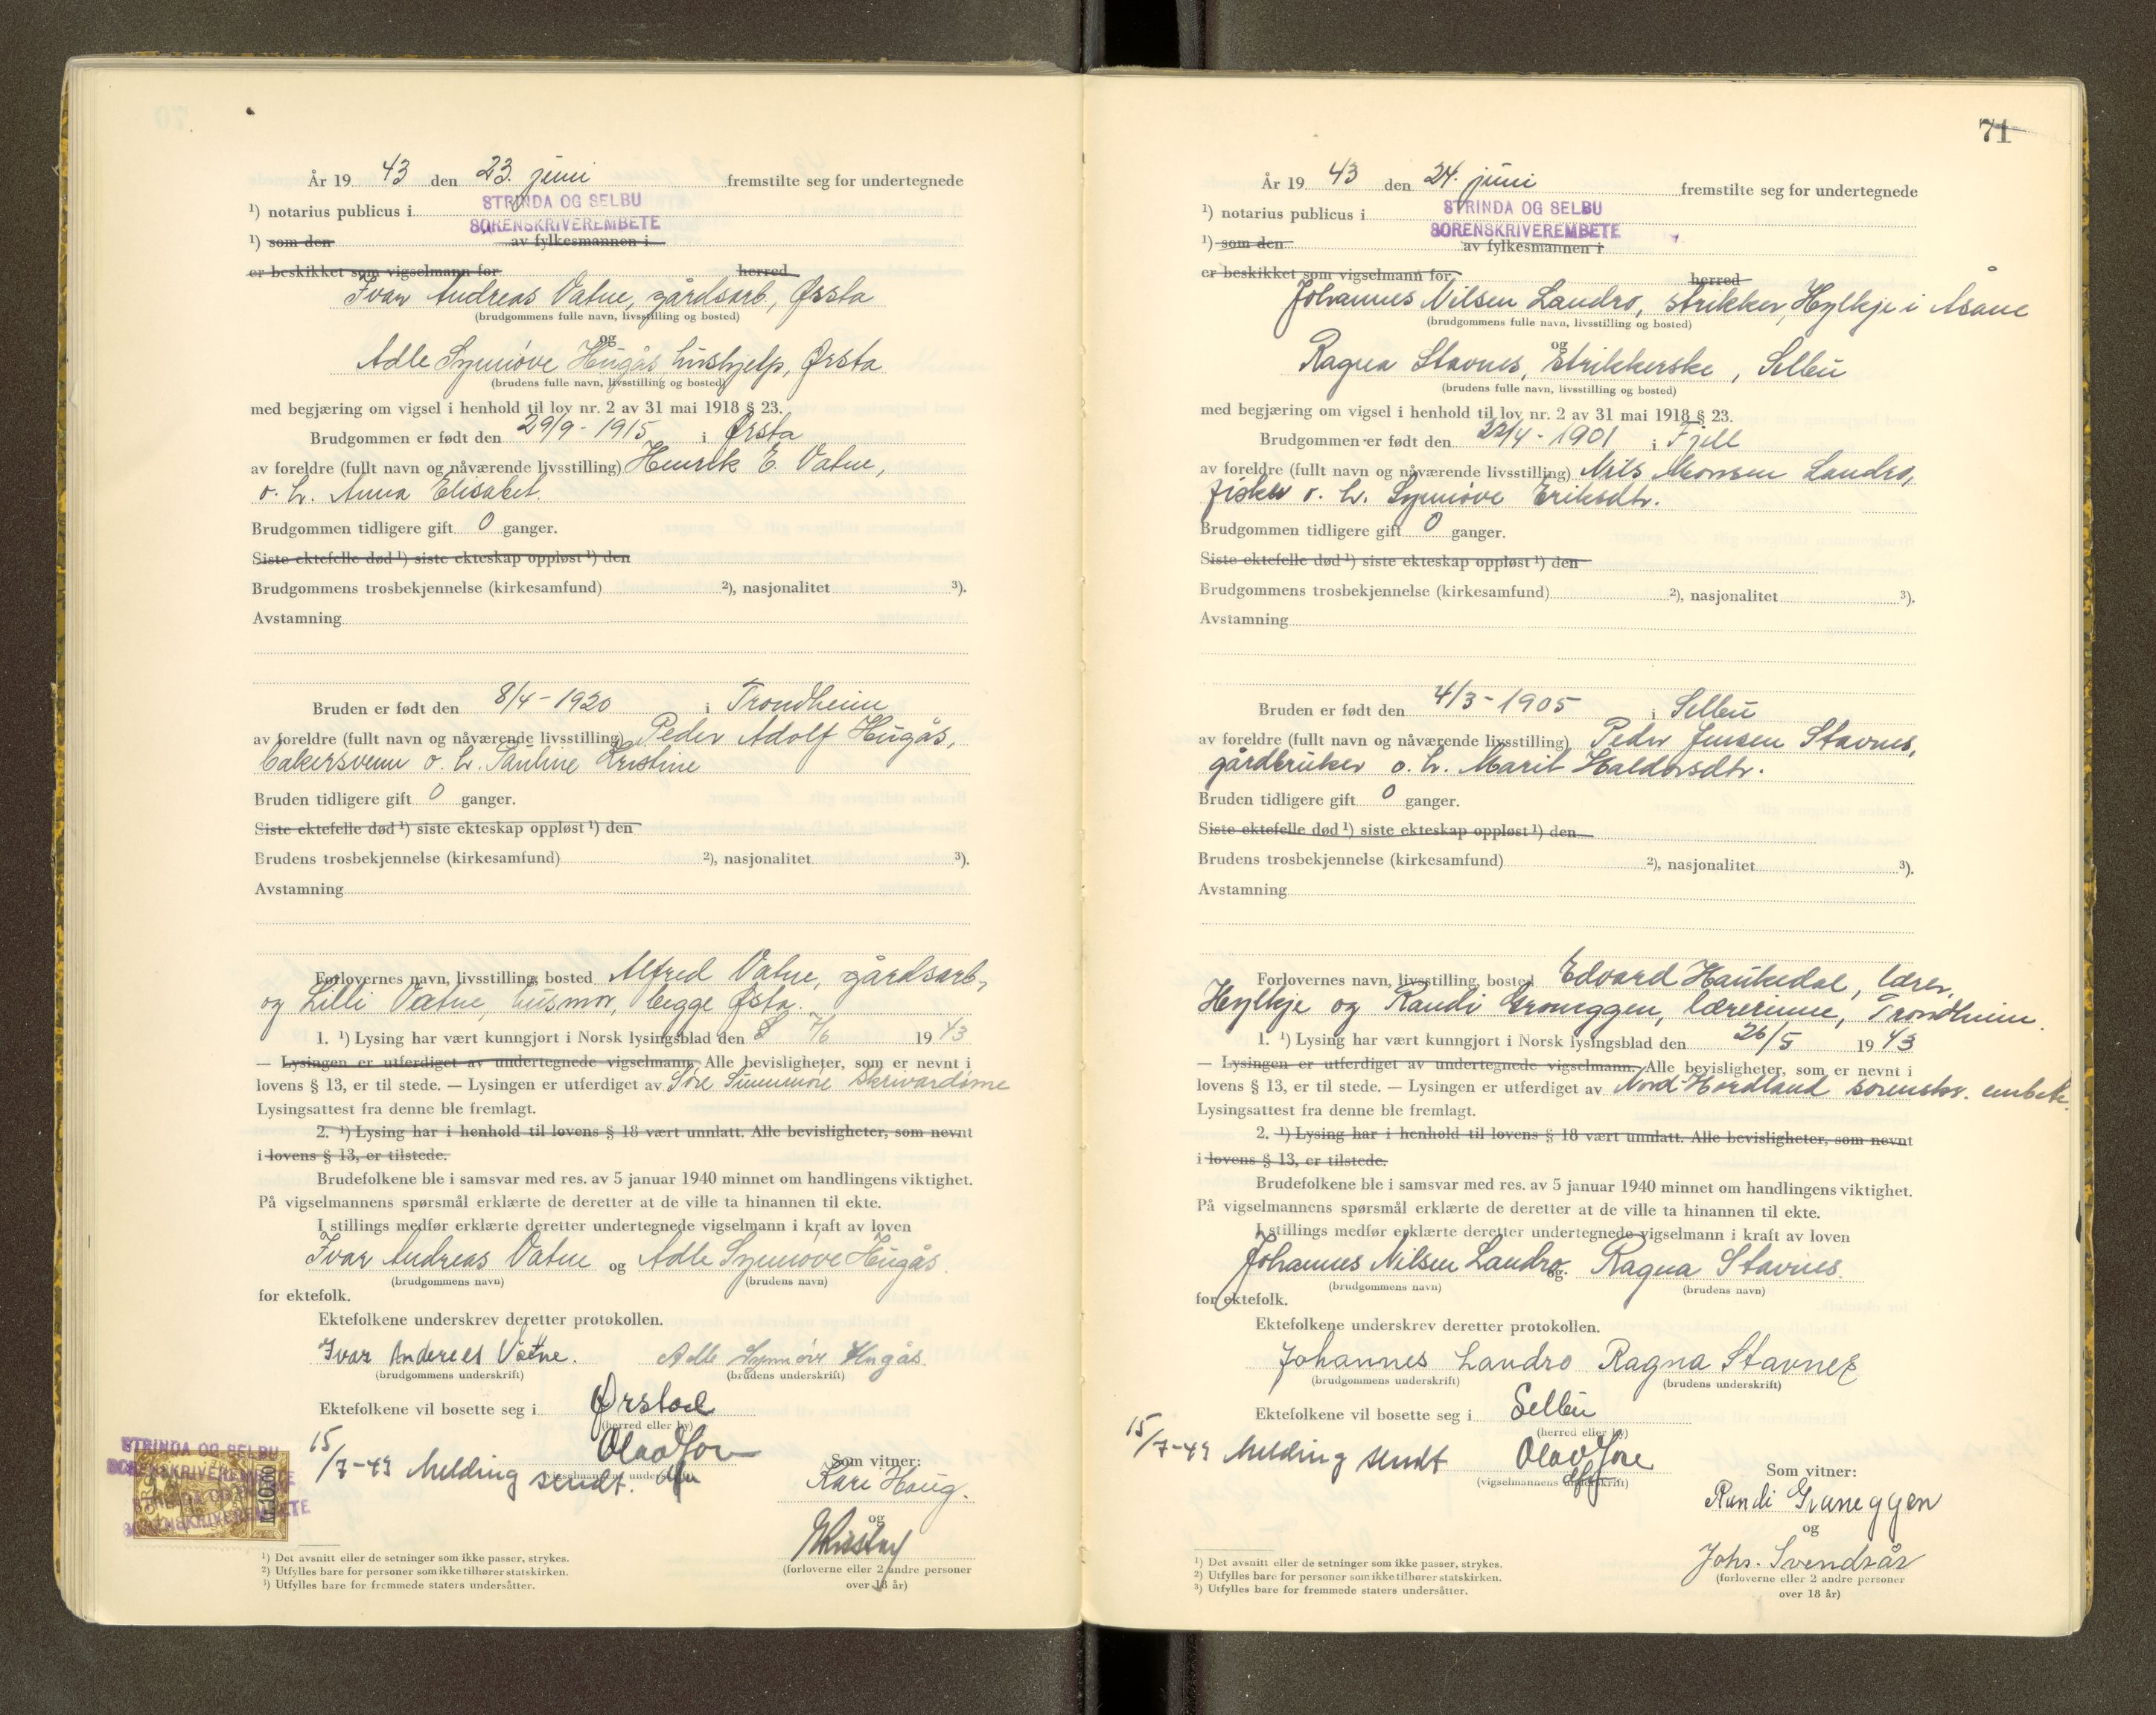 År 19 43 den 23. juni fremstilte seg for undertegnede
¹) notarius publicus i STRINDA OG SELBU
SORENSKRIVEREMBETE
¹) som den av fylkesmannen i
er beskikket som vigselmann for herred
Ivar Andreas Vatne, gårdsarb., Ørsta
(brudgommens fulle navn, livsstilling og bosted)
og
Adle Synnøve Hugås hushjelp, Ørsta
(brudens fulle navn, livsstilling og bosted)
med begjæring om vigsel i henhold til lov nr. 2 av 31 mai 1918 § 23.
Brudgommen er født den 29/9 - 1915 i Ørsta
av foreldre (fullt navn og nåværende livsstilling) Henrik E. Vatne,
o. h. Anna Elisabet
Brudgommen tidligere gift 0 ganger.
Siste ektefelle død ¹) siste ekteskap oppløst ¹) den
Brudgommens trosbekjennelse (kirkesamfund) ²), nasjonalitet ³).
Avstamning
Bruden er født den 8/4 - 1920 i Trondheim
av foreldre (fullt navn og nåværende livsstilling) Peder Adolf Hugås,
bakersvenn o. h. Pauline Kristine
Bruden tidligere gift 0 ganger.
Siste ektefelle død ¹) siste ekteskap oppløst ¹) den
Brudens trosbekjennelse (kirkesamfund) ²), nasjonalitet ³).
Avstamning
Forlovernes navn, livsstilling, bosted Alfred Vatne, gårdsarb.,
og Lilli Vatne, husmor, begge Ørsta.
1. ¹) Lysing har vært kunngjort i Norsk lysingsblad den 7/6 19 43
— Lysingen er utferdiget av undertegnede vigselmann. Alle bevisligheter, som er nevnt i
lovens § 13, er til stede. — Lysingen er utferdiget av Søre Sunnmøre skrivardøme
Lysingsattest fra denne ble fremlagt.
2. ¹) Lysing har i henhold til lovens § 18 vært unnlatt. Alle bevisligheter, som nevnt
i lovens § 13, er tilstede.
Brudefolkene ble i samsvar med res. av 5 januar 1940 minnet om handlingens viktighet.
På vigselmannens spørsmål erklærte de deretter at de ville ta hinannen til ekte.
I stillings medfør erklærte deretter undertegnede vigselmann i kraft av loven
Ivar Andreas Vatne og Adle Synnøve Hugås
(brudgommens navn) (brudens navn)
for ektefolk.
Ektefolkene underskrev deretter protokollen.
Ivar Andreas Vatne. Adle Synnøve Hugås
(brudgommens underskrift) (brudens underskrift)
Ektefolkene vil bosette seg i Ørstad
(herred eller by)
Olav Jore
(vigselmannens underskrift)
15/7-43 Melding sendt.
STRINDA OG SELBU
SORENSKRIVEREMBETE
STRINDA OG SELBU
SORENSKRIVEREMBETE
Kr. 10.00
Som vitner:
Kari Haug.
og
(forloverne eller 2 andre personer
over 18 år)
¹) Det avsnitt eller de setninger som ikke passer, strykes.
²) Utfylles bare for personer som ikke tilhører statskirken.
³) Utfylles bare for fremmede staters undersåtter.
71
År 19 43 den 24. juni fremstilte seg for undertegnede
¹) notarius publicus i STRINDA OG SELBU
SORENSKRIVEREMBETE
¹) som den av fylkesmannen i
er beskikket som vigselmann for herred
Johannes Nilsen Landro, strikker, Hylkje i Åsane
(brudgommens fulle navn, livsstilling og bosted)
og
Ragna Stavnes, strikkerske, Selbu
(brudens fulle navn, livsstilling og bosted)
med begjæring om vigsel i henhold til lov nr. 2 av 31 mai 1918 § 23.
Brudgommen er født den 22/4 - 1901 i Fjell
av foreldre (fullt navn og nåværende livsstilling) Nils Monsen Landro,
fisker o. h. Synnøve Eriksdtr.
Brudgommen tidligere gift 0 ganger.
Siste ektefelle død ¹) siste ekteskap oppløst ¹) den
Brudgommens trosbekjennelse (kirkesamfund) ²), nasjonalitet ³).
Avstamning
Bruden er født den 4/3 - 1905 i Selbu
av foreldre (fullt navn og nåværende livsstilling) Peder Jensen Stavnes,
gårdbruker o. h. Marit Haldorsdtr.
Bruden tidligere gift 0 ganger.
Siste ektefelle død ¹) siste ekteskap oppløst ¹) den
Brudens trosbekjennelse (kirkesamfund) ²), nasjonalitet ³).
Avstamning
Forlovernes navn, livsstilling, bosted Edvard Haukedal, lærer,
Hylkje og Randi Groneggen, lærerinne, Trondheim.
1. ¹) Lysing har vært kunngjort i Norsk lysingsblad den 26/5 19 43
— Lysingen er utferdiget av undertegnede vigselmann. Alle bevisligheter, som er nevnt i
lovens § 13, er til stede. — Lysingen er utferdiget av Nord Hordland sorenskr. embete.
Lysingsattest fra denne ble fremlagt.
2. ¹) Lysing har i henhold til lovens § 18 vært unnlatt. Alle bevisligheter, som nevnt
i lovens § 13, er tilstede.
Brudefolkene ble i samsvar med res. av 5 januar 1940 minnet om handlingens viktighet.
På vigselmannens spørsmål erklærte de deretter at de ville ta hinannen til ekte.
I stillings medfør erklærte deretter undertegnede vigselmann i kraft av loven
Johannes Nilsen Landro og Ragna Stavnes.
(brudgommens navn) (brudens navn)
for ektefolk.
Ektefolkene underskrev deretter protokollen.
Johannes Landro Ragna Stavnes
(brudgommens underskrift) (brudens underskrift)
Ektefolkene vil bosette seg i Selbu
(herred eller by)
15/7-43 Melding sendt Olav Jore
(vigselmannens underskrift)
Som vitner:
Randi Graneggen
og
Johs. Svendsår
(forloverne eller 2 andre personer
over 18 år)
¹) Det avsnitt eller de setninger som ikke passer, strykes.
²) Utfylles bare for personer som ikke tilhører statskirken.
³) Utfylles bare for fremmede staters undersåtter.